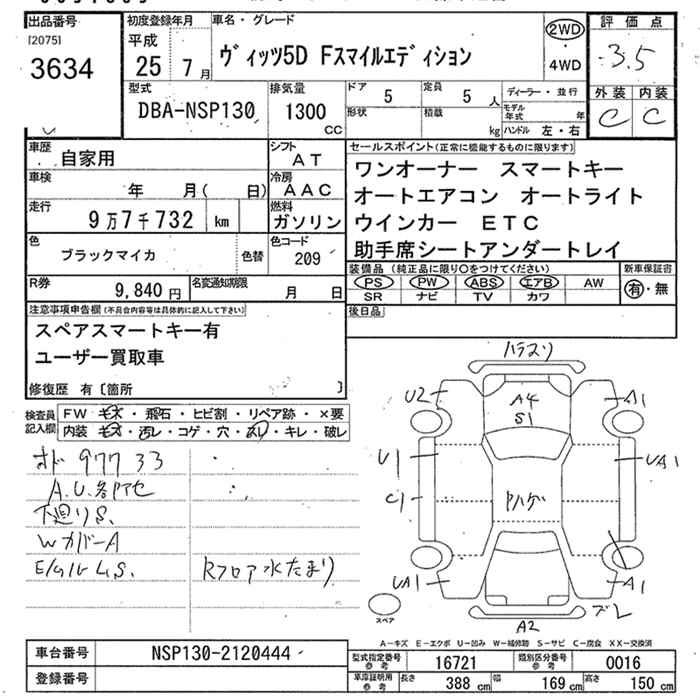 出品番号
[2075]
3634
初度登録年月
平成
25 7月
車名・グレード
ヴィッツ5D Fスマイルエディション
2WD
・
4WD
評価点
3.5
外装 内装
C C
型式
DBA-NSP130
排気量
1300
CC
ドア 5
定員 5 人
形状
積載 kg
ディーラー・並行
モデル年式 年
ハンドル 左・右
車歴 自家用
シフト AT
車検 年 月( 日)
冷房 AAC
走行 9万7千732 km
燃料 ガソリン
色 ブラックマイカ 色替
色コード 209
R券 9,840円
名変通知期限 月 日
セールスポイント(正常に機能するものに限ります)
ワンオーナー スマートキー
オートエアコン オートライト
ウインカー ETC
助手席シートアンダートレイ
装備品(純正品に限り○をつけてください)
PS PW ABS エアB AW
SR ナビ TV カワ
新車保証書
有・無
後日品
注意事項申告欄(不具合内容等は具体的に記入して下さい)
スペアスマートキー有
ユーザー買取車
修復歴 有〔箇所 〕
検査員記入欄
FW キズ・飛石・ヒビ割・リペア跡・×要
内装 キズ・汚レ・コゲ・穴・スレ・キレ・破レ
オド 97733
A.U.各所セ
下廻りS.
WカバーA
E/ルームS.
Rフロア水たまり
ハラスリ
U2
A4
S1
A1
U1
UA1
C1
Pハゲ
UA1
A1
ズレ
A2
スペア
A-キズ E-エクボ U-凹み W-補修跡 S-サビ C-腐食 XX-交換済
車台番号 NSP130-2120444
登録番号
型式指定番号 参考 16721
類別区分番号 参考 0016
車庫証明用 参考 長さ 388 cm 幅 169 cm 高さ 150 cm